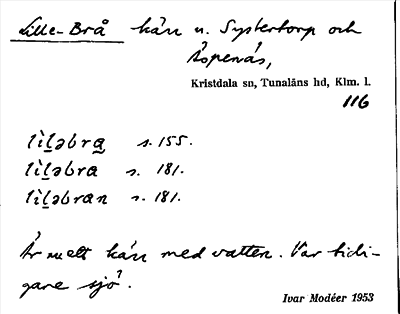 Lille-Brå kärr n. Systertorp och
Äspenäs,
Kristdala sn, Tunaläns hd, Klm. l.
116
lìlǝbra s. 155.
lìlǝbra s. 181.
lìlǝbran s. 181.
Är nu elt kärr med vatten. Var tidi-
gare sjö.
Ivar Modéer 1953